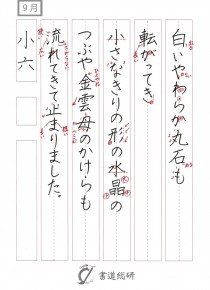 9月
白いやわらか丸石も
転がってき
小さなきりの形の水晶の
つぶや金雲母のかけらも
流れてきて止まりました。
小六
書道総研